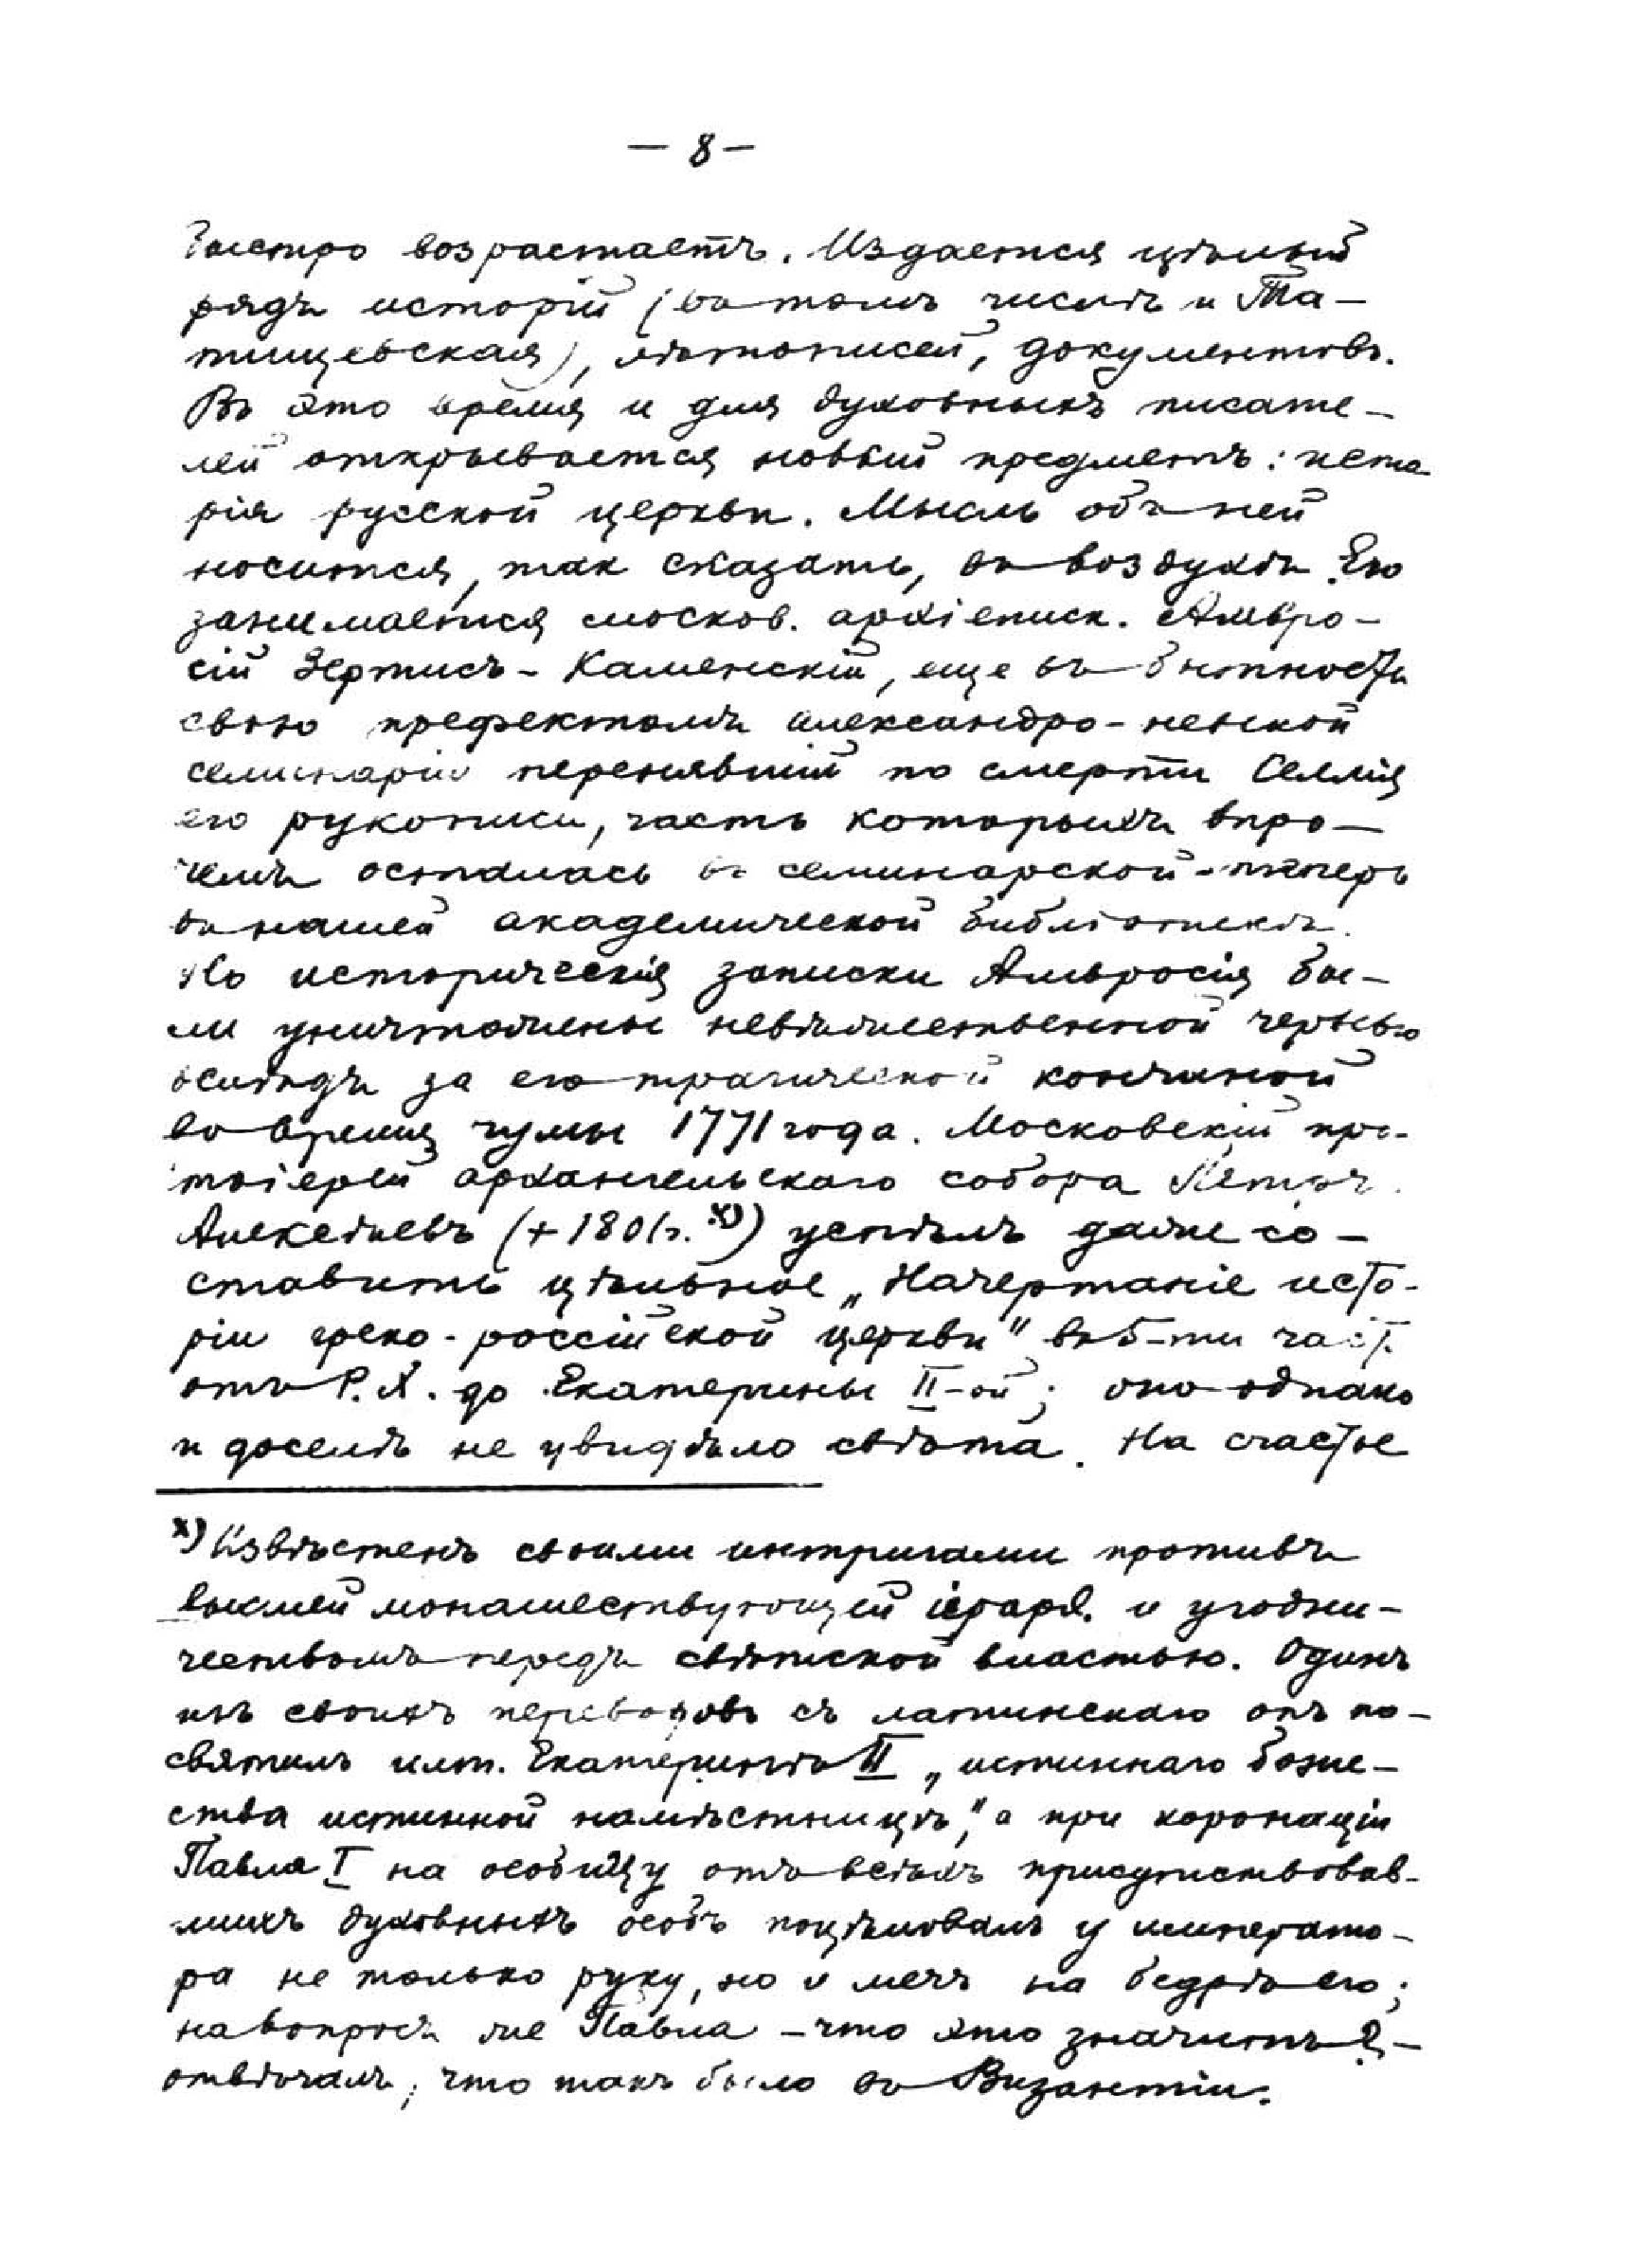 — 8 —
быстро возрастаетъ. Издается цѣлый
рядъ исторій (въ томъ числѣ и Та-
тищевская), лѣтописей, документовъ.
Въ это время и для духовныхъ писате-
лей открывается новый предметъ: исто
рія русской церкви. Мысль объ ней
носится, так сказать, въ воздухѣ. Ею
занимается москов. архіеписк. Амвро-
сій Зертисъ-Каменскій, еще въ бытность
свою префектомъ александро-невской
семинаріи перенявшій по смерти Селлія
его рукописи, часть которыхъ впро-
чемъ осталась въ семинарской-теперь
въ нашей академической библіотекѣ.
Но историческія записки Амвросія бы-
ли уничтожены невѣжественной чернью
вслѣдъ за его трагической кончиной
во время чумы 1771 года. Московскій про-
тоіерей архангельскаго собора Петръ
Алексѣевъ (+1801г. х)) успѣлъ даже со-
ставить цѣльное „Начертаніе исто-
ріи греко-россійской церкви" въ 5-ти част.
отъ Р.Х. до Екатерины II-ой; оно однако
и доселѣ не увидѣло свѣта. На счастье
х) Извѣстенъ своими интригами противъ
высшей монашествующей іерарх. и угодни-
чествомъ передъ свѣтской властью. Одинъ
изъ своихъ переводовъ съ латинскаго онъ по-
святилъ имп. Екатеринѣ II „истиннаго боже-
ства истинной намѣстницѣ", а при коронаціи
Павла I на особицу отъ всѣхъ присутствовав-
шихъ духовныхъ особъ поцѣловалъ у императо-
ра не только руку, но и мечъ на бедрѣ его;
на вопросъ же Павла – что это значитъ? –
отвѣчалъ, что такъ было въ Византіи.